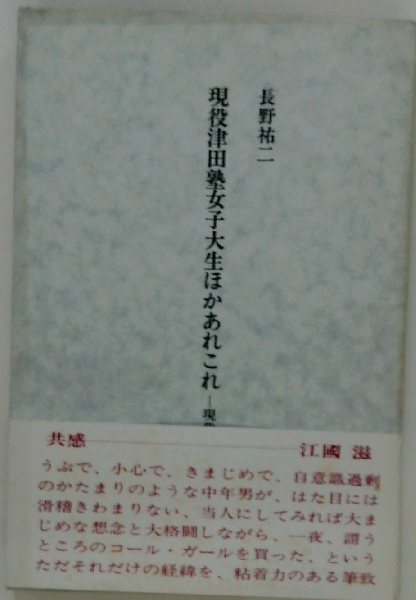 長野祐二
現役津田塾女子大生ほかあれこれ
―現
共感―――江國 滋
うぶで、小心で、きまじめで、自意識過剰
のかたまりのような中年男が、はた目には
滑稽きわまりない、当人にしてみれば大ま
じめな想念と大格闘しながら、一夜、謂う
ところのコール・ガールを買った、という
ただそれだけの経緯を、粘着力のある筆致